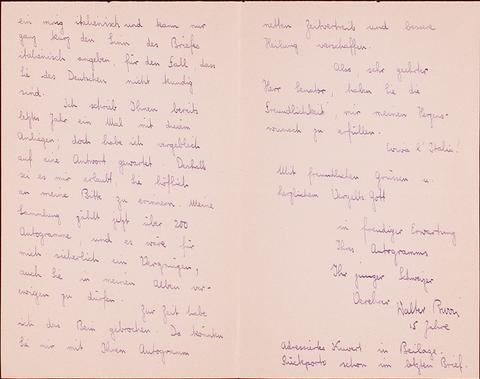 ein wenig italienisch und kann nur
ganz kurz den Sinn des Briefes
italienisch angeben, für den Fall dass
Sie des Deutschen nicht kundig
sind.
Ich schrieb Ihnen bereits
letztes Jahr ein Mal mit diesem
Anliegen; doch habe ich vergeblich
auf eine Antwort gewartet. Deshalb
sei es mir erlaubt, Sie höflich
an meine Bitte zu erinnern. Meine
Sammlung zählt jetzt über 200
Autogramme, und es wäre für
mich sicherlich ein Vergnügen,
auch Sie in meinem Album ver-
ewigen zu dürfen.
Zur Zeit habe
ich das Bein gebrochen. Da könnten
Sie mir mit Ihrem Autogramm
netten Zeitvertreib und bessere
Heilung verschaffen.
Also, sehr geehrter
Herr Senator, haben Sie die
Freundlichkeit, mir meinen Herzens-
wunsch zu erfüllen.
Evviva l'Italia!
Mit freundlichen Grüssen u.
herzlichem Vergelts Gott
in freudiger Erwartung
Ihres Autogramms
Ihr junger Schweizer
Verehrer
Walter
15 Jahre
Adressiertes Kuvert in Beilage.
Rückporto schon im letzten Brief.